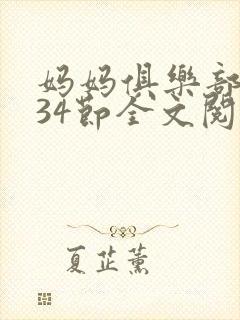 妈妈俱樂部
34節全文閱
夏芷薰